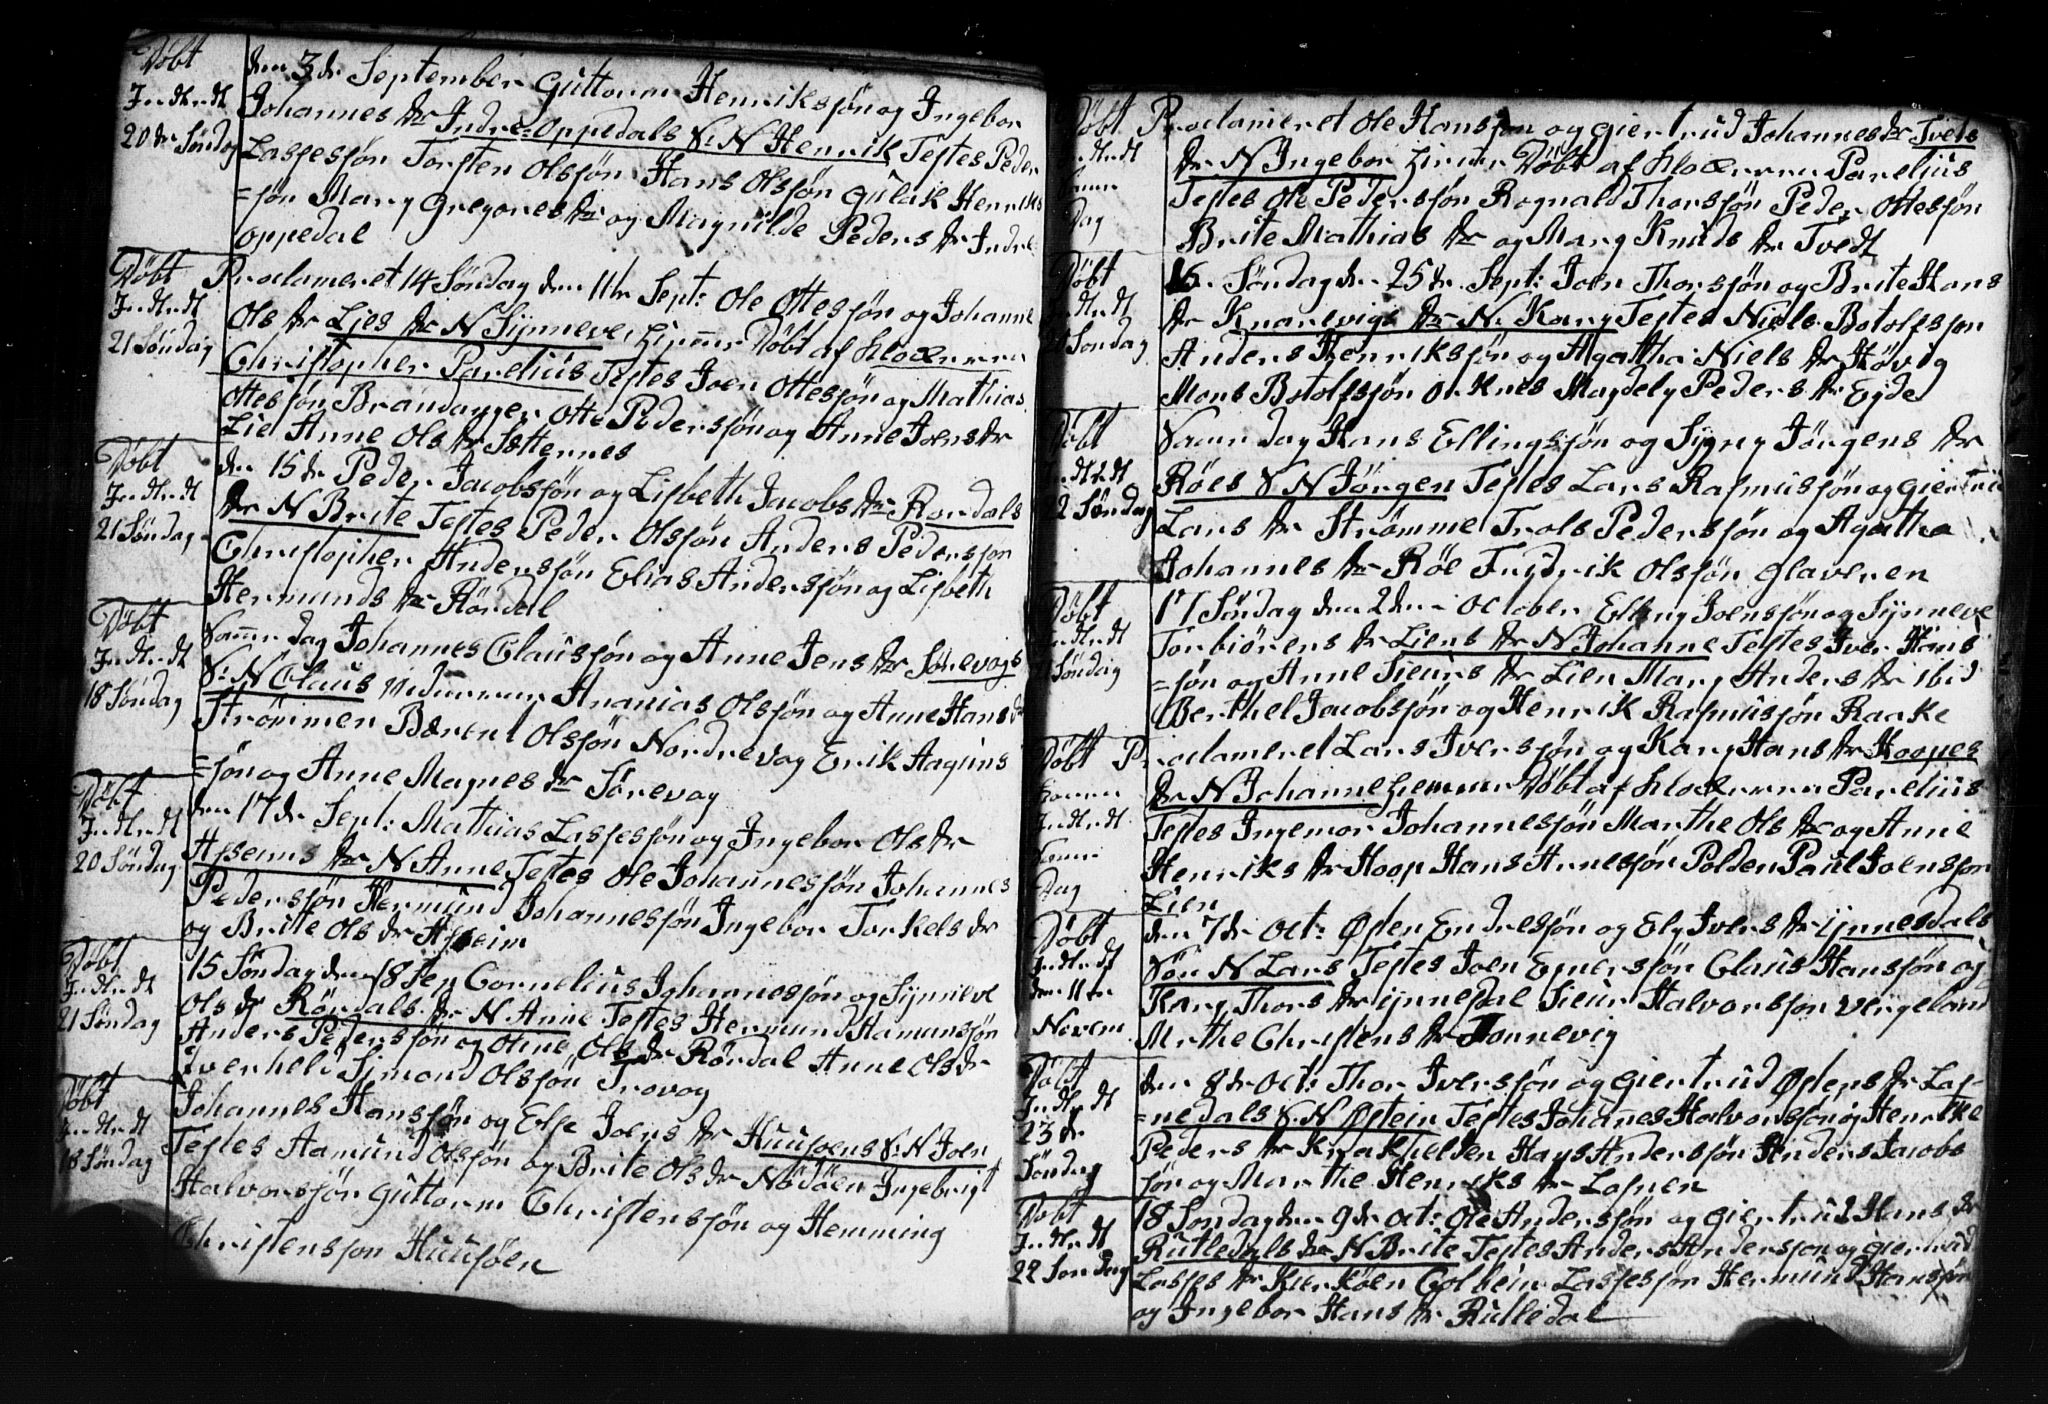 Døbt
I. H. H.
20de Søndag
den 3de September Guttorm Henriksøn og Ingebor
Johannes dtr Indre Oppedals S: N Henrik Testes Peder
Lassesøn Torsten Olsøn Hans Olsøn Gulak Henriks
=søn Mary Gregores dtr og Magnilde Peders dtr Indre
Oppedal
Døbt
I. H. H.
21 Søndag
Proclameret 14 Søndag den 11te Sept: Ole Ottesøn og Johanne
Ols dtr Lies dtr N Synneve, Døbt af Klokkeren
Christopher Parelius Testes Joen Ottesøn og Mathias
Ottesøn Brandanger Otte Pedersøn og Anne Joens dtr
Lie Anne Ols dtr Sættennes
Døbt
I. H. H.
21 Søndag
den 15de Peder Jacobsøn og Lisbeth Jacobs dtr Rørdals
dtr N Brite Testes Peder Olsøn Anders Pedersøn
Christopher Andersøn Elias Andersøn og Lisbeth
Hermunds dtr Rørdal
Døbt
I. H. H.
18 Søndag
Samme dag Johannes Clausøn og Anne Jens dtr Sørevogs
S: N Claus Ananias Olsøn og Anne Hans dtr
Strømmen Berent Olsøn Nordrevag Erik Haquins
=søn og Anne Magnes dtr Sørevag
Døbt
I. H. H.
20 Søndag
den 17de Sept: Mathias Lassesøn og Ingebor Ols dtr
dtr N Anne Testes Ole Johannesøn Johannes
Pedersøn Hermund Johannesøn Ingebor Torkels dtr
og Brite Ols dtr
Døbt
I. H. H.
21 Søndag
15 Søndag den 18 Cornelius Johannesøn og Synneve
Ols dtr Rørdals dtr N Anne Testes Hermund Hamunsøn
Anders Pedersøn og Oline Ols dtr Rørdal Anne Ols dtr
Simond Olsøn Trovog
Døbt
I. H. H.
18 Søndag
Johannes Hansøn og Else Joens dtr Huusøens S: N Joen
Testes Hamund Olsøn og Brite Ols dtr Nødøen Ingebrigt
Halvorsøn Guttorm Christensøn og Hemming
Christensøn Huusøen
Døbt
I. H. H.
Samme
Dag
Proclameret Ole Hansøn og Giertrud Johannes dtr Tvets
dtr N Ingebor Døbt af Klokkeren Parelius
Testes Ole Pedersøn Rognald Thorsøn Peder Ottesøn
Brite Mathias dtr og Mary Knuds dtr Tvedt
Døbt
I. H. H.
Søndag
16 Søndag den 25de Sept: Joen Thorsøn og Brite Hans
dtr Knarevigs dtr N. Kary Testes Niels Botolfsøn
Anders Henriksøn og Agatha Niels dtr Høvig
Mons Botolfsøn Orknes Magdely Peders dtr Eyde
Døbt
I. H. H.
22 Søndag
Samme dag Hans Ellingsøn og Sygny Jørgens dtr
Røes S N Jørgen Testes Lars Rasmusøn og Giertrud
Lars dtr Strømme Trols Pedersøn og Agatha
Johannes dtr Røe Fridrik Olsøn Glaveren
Døbt
I. H. H.
Søndag
17 Søndag den 2den October Elling Joensøn og Synneve
Torbiørens dtr Liens dtr N Johanne Testes Iver Hans
=søn og Anne Siurs dtr Lien Mary Anders dtr ibid
Berthel Jacobsøn og Henrik Rasmusøn Raake
Døbt
I. H. H.
Samme
Dag
Proclameret Lars Iversøn og Kary Hans dtr Hoopes
dtr N Johanne hiemme Døbt af Klokkeren Parelius
Testes Ingemor Johannesøn Marthe Ols dtr og Anne
Henriks dtr Hoop Hans Arnesøn Polden Paul Joensøn
Lien
Døbt
I. H. H.
den 11te
Novem
den 7de Oct: Østen Endresøn og Ely Ivers dtr Ynnesdals
Søn N Lars Testes Joen Enersøn Claus Hansøn og
Kary Thors dtr Ynnesdal Siur Halvorsøn Vergeland
Merthe Christens dtr Tonnevig
Døbt
I. H. H.
23de
Søndag
den 8de Oct: Thor Iversøn og Giertrud Østens dtr Las-
=nedals S. N. Østein Testes Johannes Halvorsøn og Henrike
Peders dtr Hans Andersøn Anders Jacob
søn og Marthe Henriks dtr Lasnen
Døbt
I. H. H.
22 Søndag
18 Søndag den 9de Oct: Ole Andersøn og Giertrud Hans dtr
Rutledals dtr N Brite Testes Anders Andersøn og Giertrud
Lasses dtr Colbein Lassesøn Hermund Hansøn
og Ingebor Hans dtr Rutledal